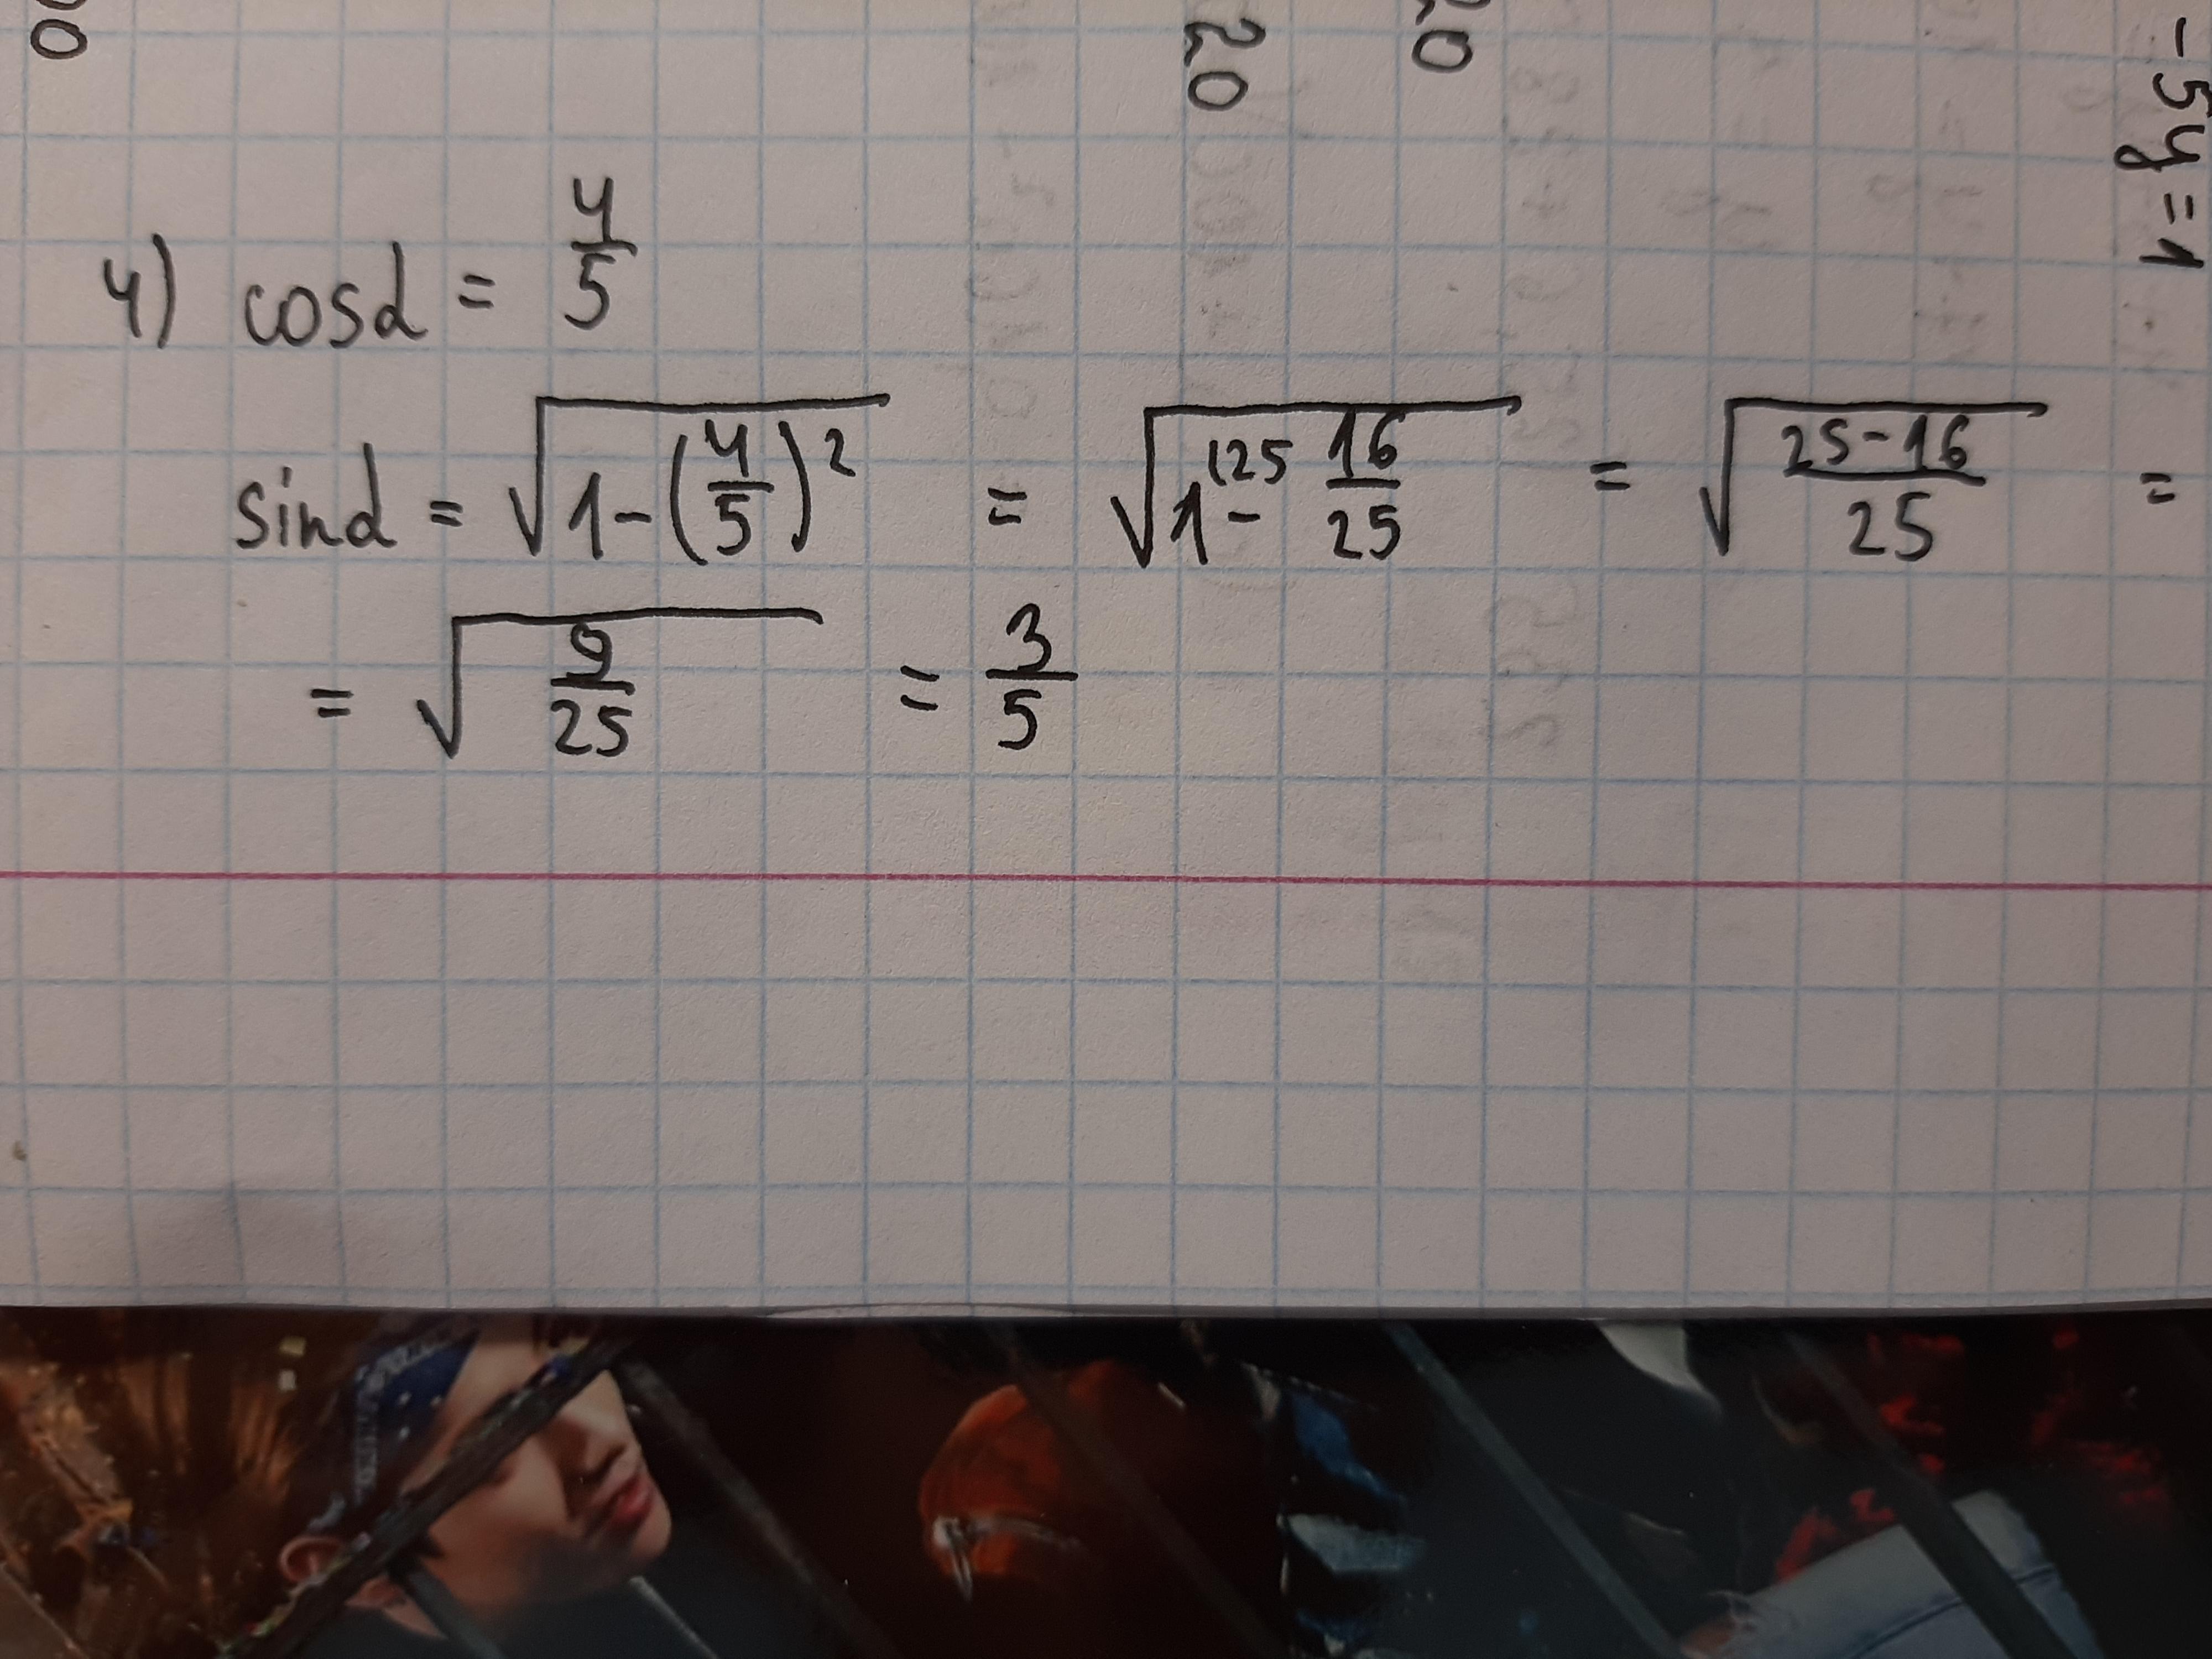 00
20
20
-5y=1
4) cosα = 4/5
sinα = √(1-(4/5)²) = √(1⁽²⁵ - 16/25) = √((25-16)/25) =
= √(9/25) = 3/5